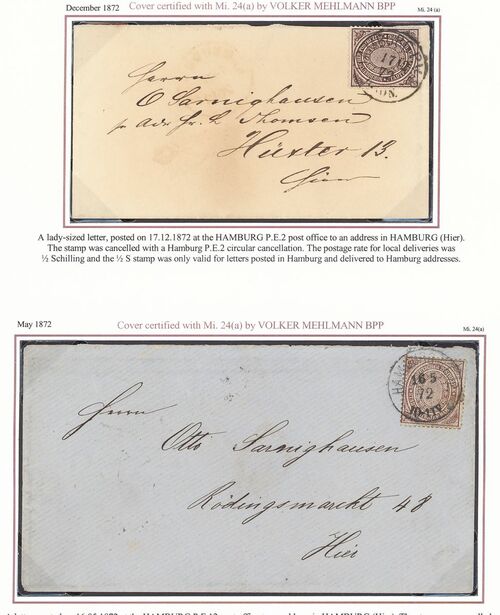 December 1872 Cover certified with Mi. 24(a) by VOLKER MEHLMANN BPP Mi. 24 (a)
17 12
72
Herrn
O Sarnighausen
pr adr Hr. L Thomsen
Hüxter 13.
Hier
A lady-sized letter, posted on 17.12.1872 at the HAMBURG P.E.2 post office to an address in HAMBURG (Hier).
The stamp was cancelled with a Hamburg P.E.2 circular cancellation. The postage rate for local deliveries was
½ Schilling and the ½ S stamp was only valid for letters posted in Hamburg and delivered to Hamburg addresses.
May 1872 Cover certified with Mi. 24(a) by VOLKER MEHLMANN BPP Mi. 24(a)
16 5
72
Herrn
Otto Sarnighausen
Rödingsmarkt 48
Hier